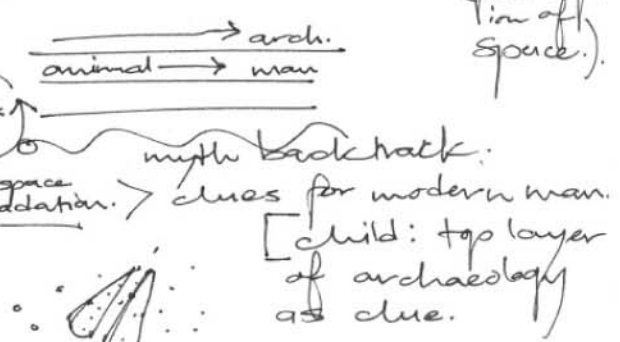 arch.
space.).
animal → man
myth backtrack:
space
> clues for modern man.
[child: top layer
of archaeology
as clue.